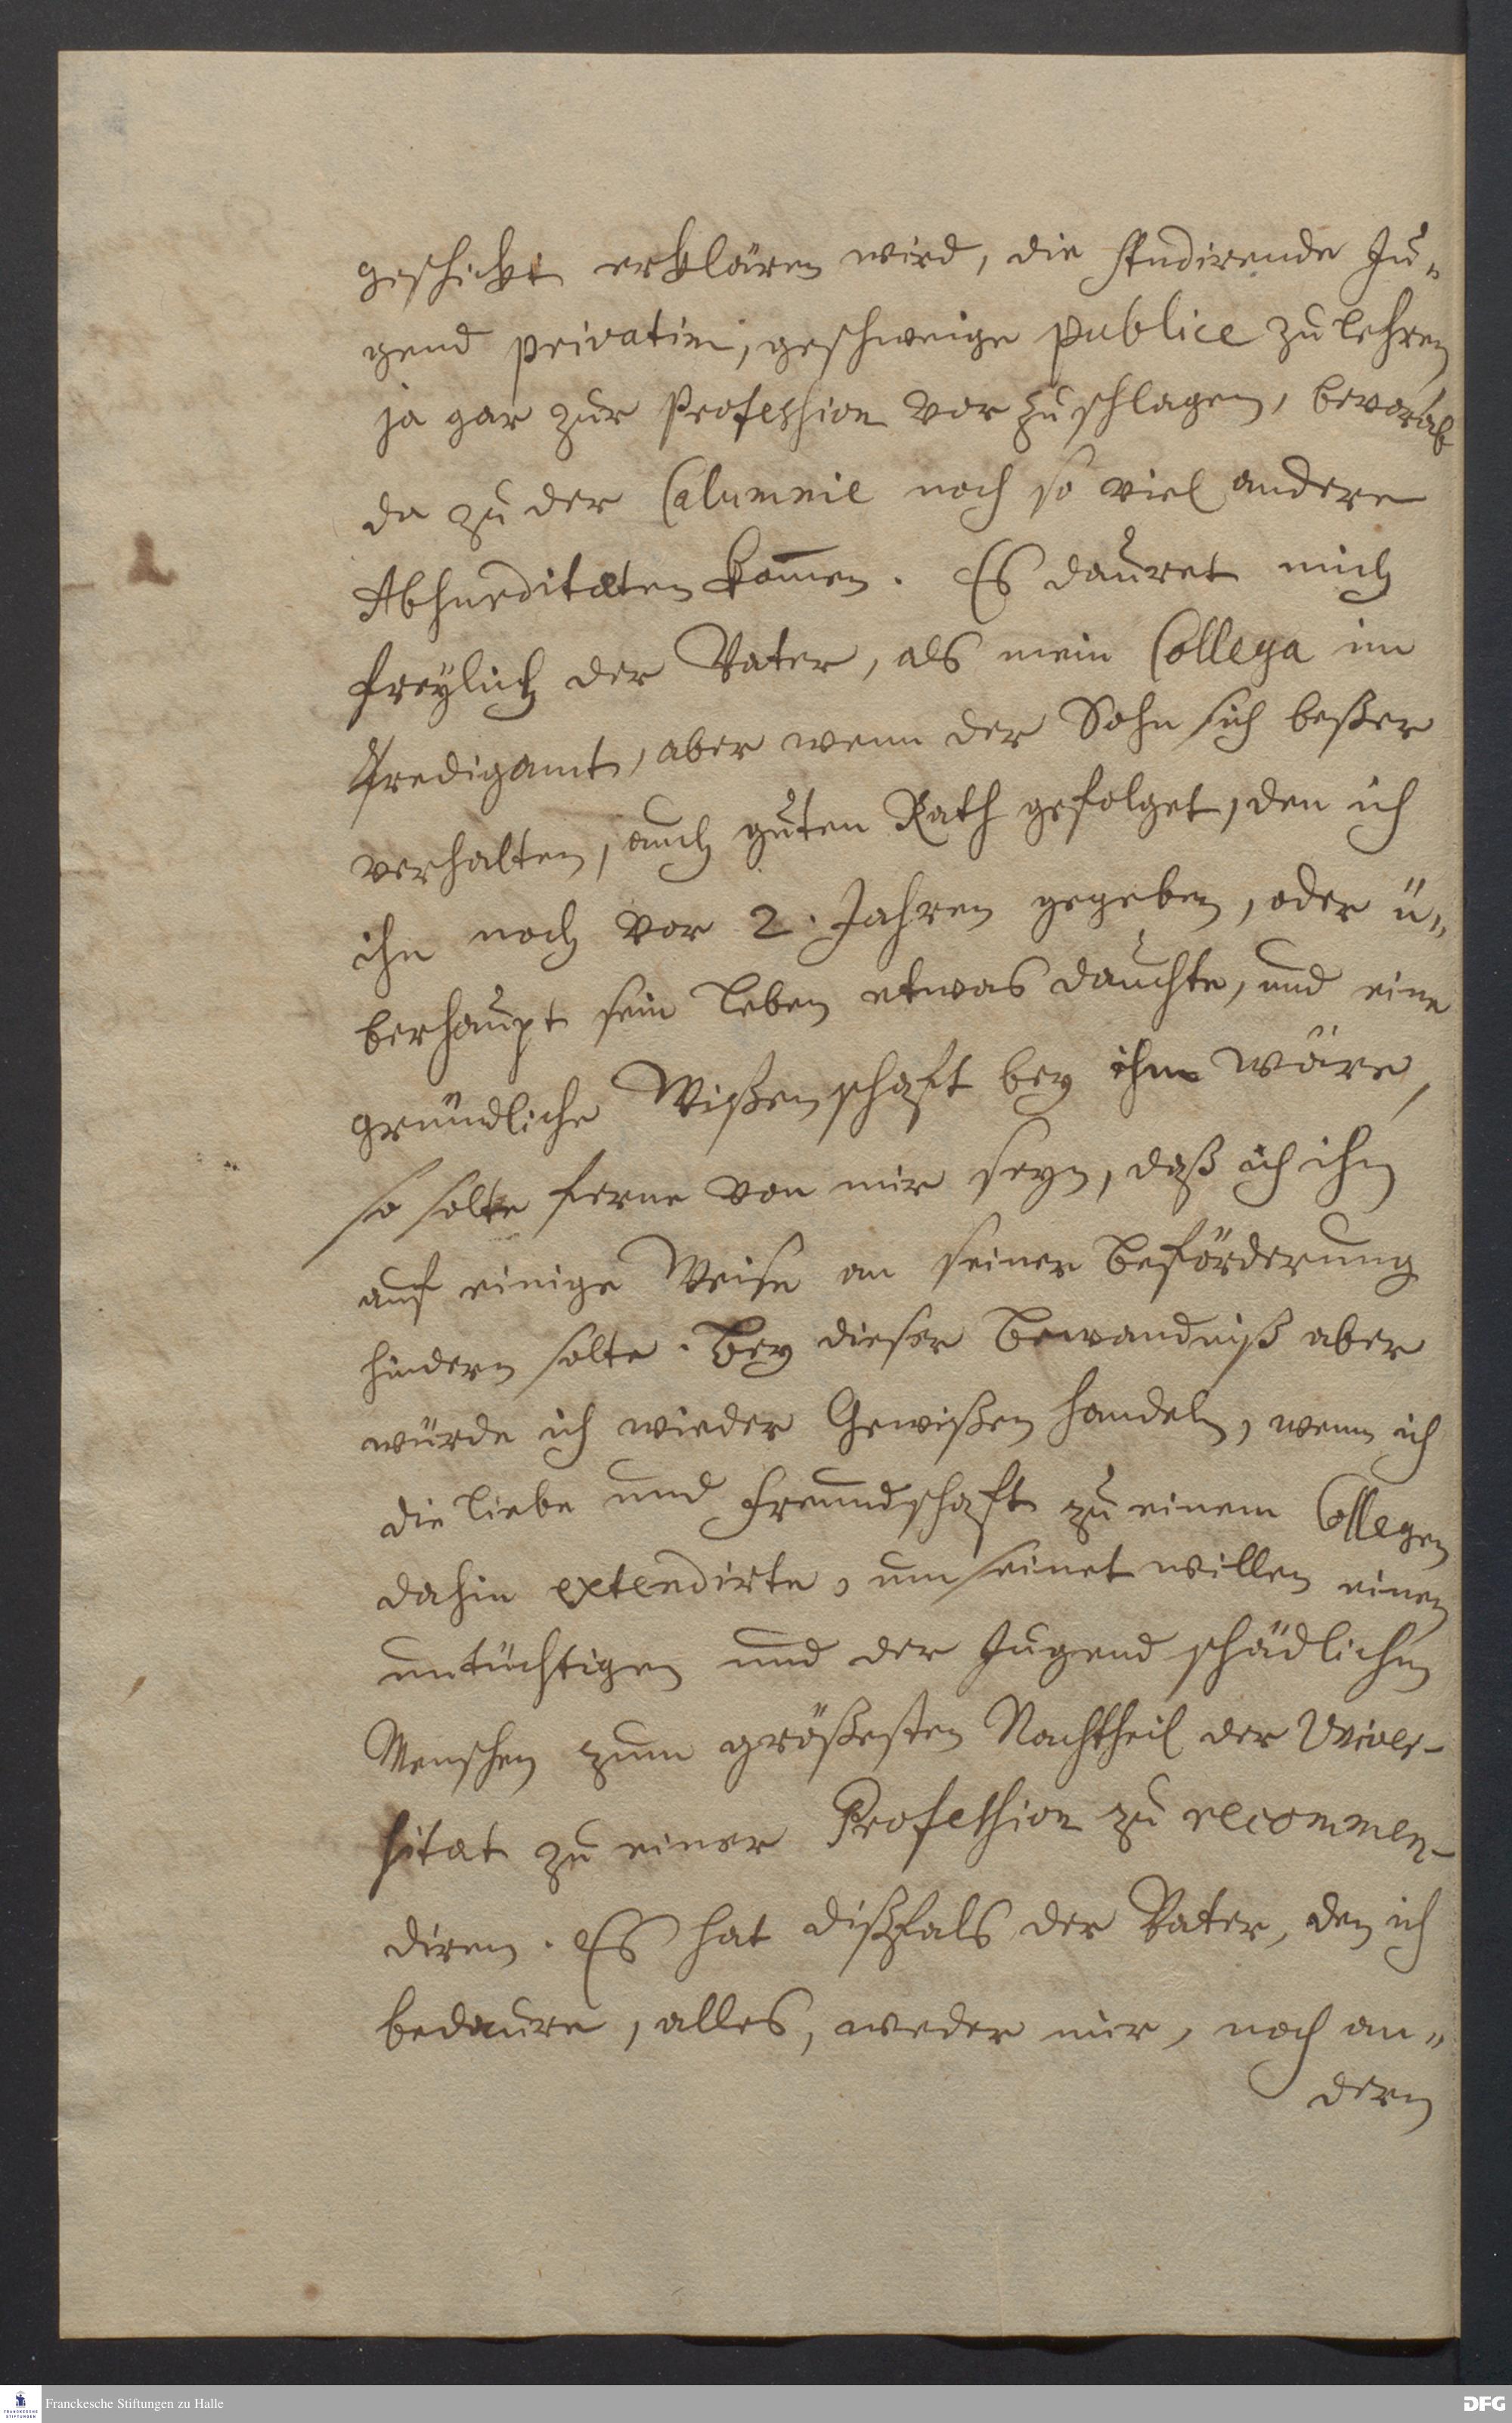 geschickt erklären wird, die studirende Ju„
gend privatim, geschweige publice zu lehren,
ja gar zur Profession vor zu schlagen, bevorab
da zu der Calumnie noch so viel andere
Absurditæten kom̄en. Es dauret mich
freylich der Vater, als mein Collega im
Predigamt, aber wenn der Sohn sich beßer
verhalten, auch guten Rath gefolget, den ich
ihn noch vor 2. Jahren gegeben, oder ü„
berhaupt sein Leben etwas dauchte, und eine
gründliche Wißenschaft bey ihm wäre,
so solte ferne von mir seyn, daß ich ihn
auf einige Weise an seiner Beförderung
hindern solte. Bey dieser Bewandniß aber
würde ich wieder Gewißen handeln, wenn ich
die Liebe und Freundschaft zu einem Collegen
dahin extendirte, um seinet willen einen
untüchtigen und der Jugend schädlichen
Menschen zum größesten Nachtheil der Univer-
sitat zu einer Profession zu recommen-
diren. Es hat dißfals der Vater, den ich
bedaure, alles, weder mir, noch an„
dern
Franckesche Stiftungen zu Halle
DFG